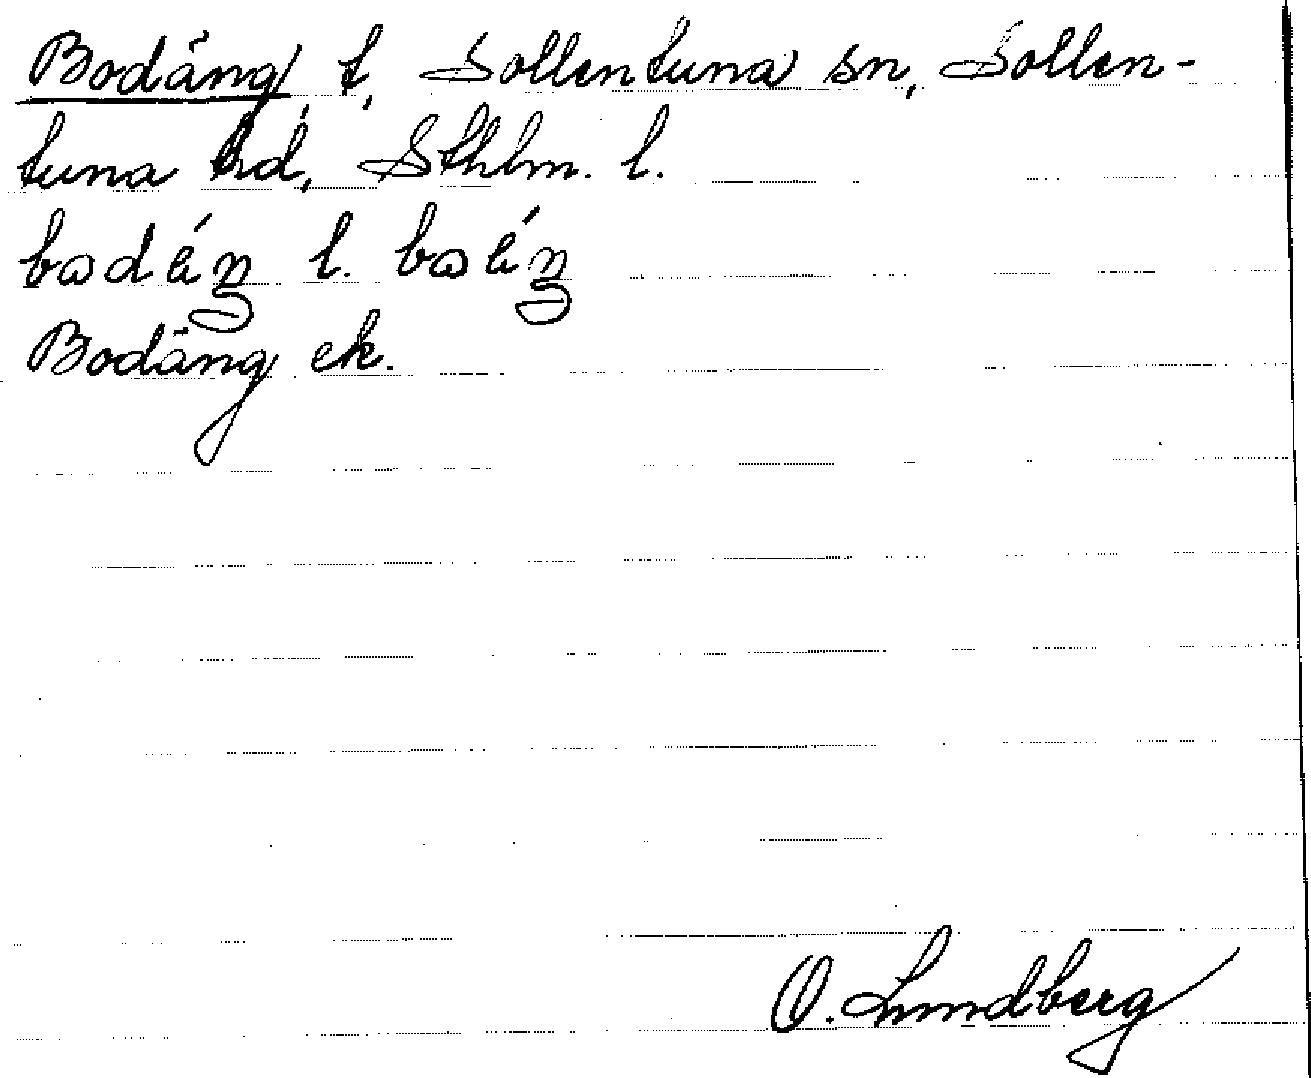 Bodäng, t, Sollentuna sn, Sollen-
tuna hd, Sthlm. l.
Bodäng ek.
O. Lundberg